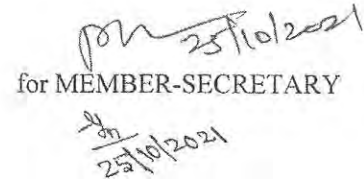 25/10/2021
for MEMBER-SECRETARY
25/10/2021